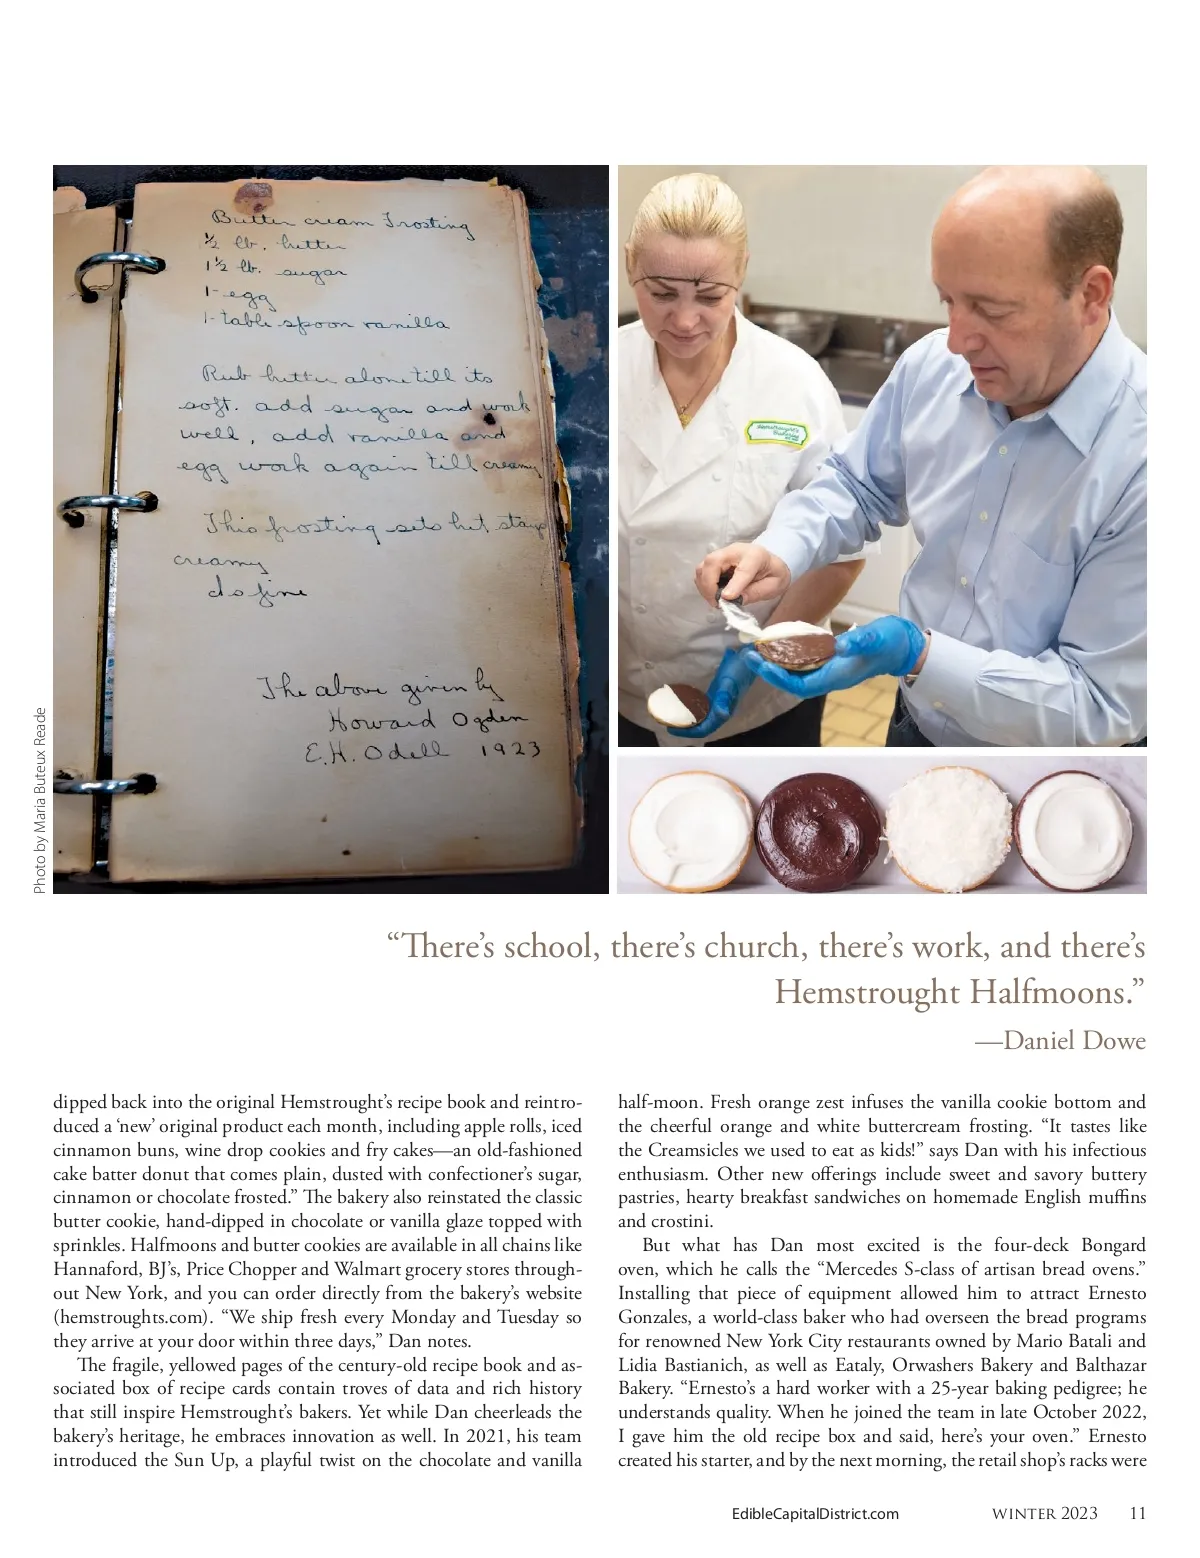 Butter cream Frosting
½ lb. butter
1 ½ lb. sugar
1 - egg
1 - table spoon vanilla
Rub butter alone till its
soft. add sugar and work
well, add vanilla and
egg work again till creamy
This frosting sets but stays
creamy
do fine
The above given by
Howard Ogden
E.H. Odell 1923
Photo by Maria Buteux Reade
“There’s school, there’s church, there’s work, and there’s
Hemstrought Halfmoons.”
—Daniel Dowe
dipped back into the original Hemstrought’s recipe book and reintro-
duced a ‘new’ original product each month, including apple rolls, iced
cinnamon buns, wine drop cookies and fry cakes—an old-fashioned
cake batter donut that comes plain, dusted with confectioner’s sugar,
cinnamon or chocolate frosted.” The bakery also reinstated the classic
butter cookie, hand-dipped in chocolate or vanilla glaze topped with
sprinkles. Halfmoons and butter cookies are available in all chains like
Hannaford, BJ’s, Price Chopper and Walmart grocery stores through-
out New York, and you can order directly from the bakery’s website
(hemstroughts.com). “We ship fresh every Monday and Tuesday so
they arrive at your door within three days,” Dan notes.
The fragile, yellowed pages of the century-old recipe book and as-
sociated box of recipe cards contain troves of data and rich history
that still inspire Hemstrought’s bakers. Yet while Dan cheerleads the
bakery’s heritage, he embraces innovation as well. In 2021, his team
introduced the Sun Up, a playful twist on the chocolate and vanilla
half-moon. Fresh orange zest infuses the vanilla cookie bottom and
the cheerful orange and white buttercream frosting. “It tastes like
the Creamsicles we used to eat as kids!” says Dan with his infectious
enthusiasm. Other new offerings include sweet and savory buttery
pastries, hearty breakfast sandwiches on homemade English muffins
and crostini.
But what has Dan most excited is the four-deck Bongard
oven, which he calls the “Mercedes S-class of artisan bread ovens.”
Installing that piece of equipment allowed him to attract Ernesto
Gonzales, a world-class baker who had overseen the bread programs
for renowned New York City restaurants owned by Mario Batali and
Lidia Bastianich, as well as Eataly, Orwashers Bakery and Balthazar
Bakery. “Ernesto’s a hard worker with a 25-year baking pedigree; he
understands quality. When he joined the team in late October 2022,
I gave him the old recipe box and said, here’s your oven.” Ernesto
created his starter, and by the next morning, the retail shop’s racks were
EdibleCapitalDistrict.com WINTER 2023 11